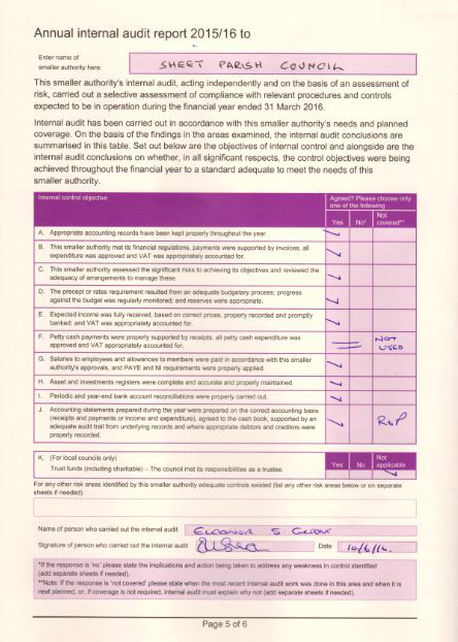 Annual internal audit report 2015/16 to
Enter name of
smaller authority here:
SHEET PARISH COUNCIL
This smaller authority's internal audit, acting independently and on the basis of an assessment of
risk, carried out a selective assessment of compliance with relevant procedures and controls
expected to be in operation during the financial year ended 31 March 2016.
Internal audit has been carried out in accordance with this smaller authority's needs and planned
coverage. On the basis of the findings in the areas examined, the internal audit conclusions are
summarised in this table. Set out below are the objectives of internal control and alongside are the
internal audit conclusions on whether, in all significant respects, the control objectives were being
achieved throughout the financial year to a standard adequate to meet the needs of this
smaller authority.
Internal control objective
Agreed? Please choose only
one of the following
Yes No* Not
covered**
A. Appropriate accounting records have been kept properly throughout the year.
B. This smaller authority met its financial regulations, payments were supported by invoices, all
expenditure was approved and VAT was appropriately accounted for.
C. This smaller authority assessed the significant risks to achieving its objectives and reviewed the
adequacy of arrangements to manage these.
D. The precept or rates requirement resulted from an adequate budgetary process; progress
against the budget was regularly monitored; and reserves were appropriate.
E. Expected income was fully received, based on correct prices, properly recorded and promptly
banked; and VAT was appropriately accounted for.
F. Petty cash payments were properly supported by receipts, all petty cash expenditure was
approved and VAT appropriately accounted for.
NOT
USED
G. Salaries to employees and allowances to members were paid in accordance with this smaller
authority's approvals, and PAYE and NI requirements were properly applied.
H. Asset and investments registers were complete and accurate and properly maintained.
I. Periodic and year-end bank account reconciliations were properly carried out.
J. Accounting statements prepared during the year were prepared on the correct accounting basis
(receipts and payments or income and expenditure), agreed to the cash book, supported by an
adequate audit trail from underlying records and where appropriate debtors and creditors were
properly recorded.
R&P
K. (For local councils only)
Trust funds (including charitable) – The council met its responsibilities as a trustee.
Yes No Not
applicable
For any other risk areas identified by this smaller authority adequate controls existed (list any other risk areas below or on separate
sheets if needed)
Name of person who carried out the internal audit
S.
Signature of person who carried out the internal audit
Date
*If the response is 'no' please state the implications and action being taken to address any weakness in control identified
(add separate sheets if needed).
**Note: If the response is 'not covered' please state when the most recent internal audit work was done in this area and when it is
next planned, or, if coverage is not required, internal audit must explain why not (add separate sheets if needed).
Page 5 of 6